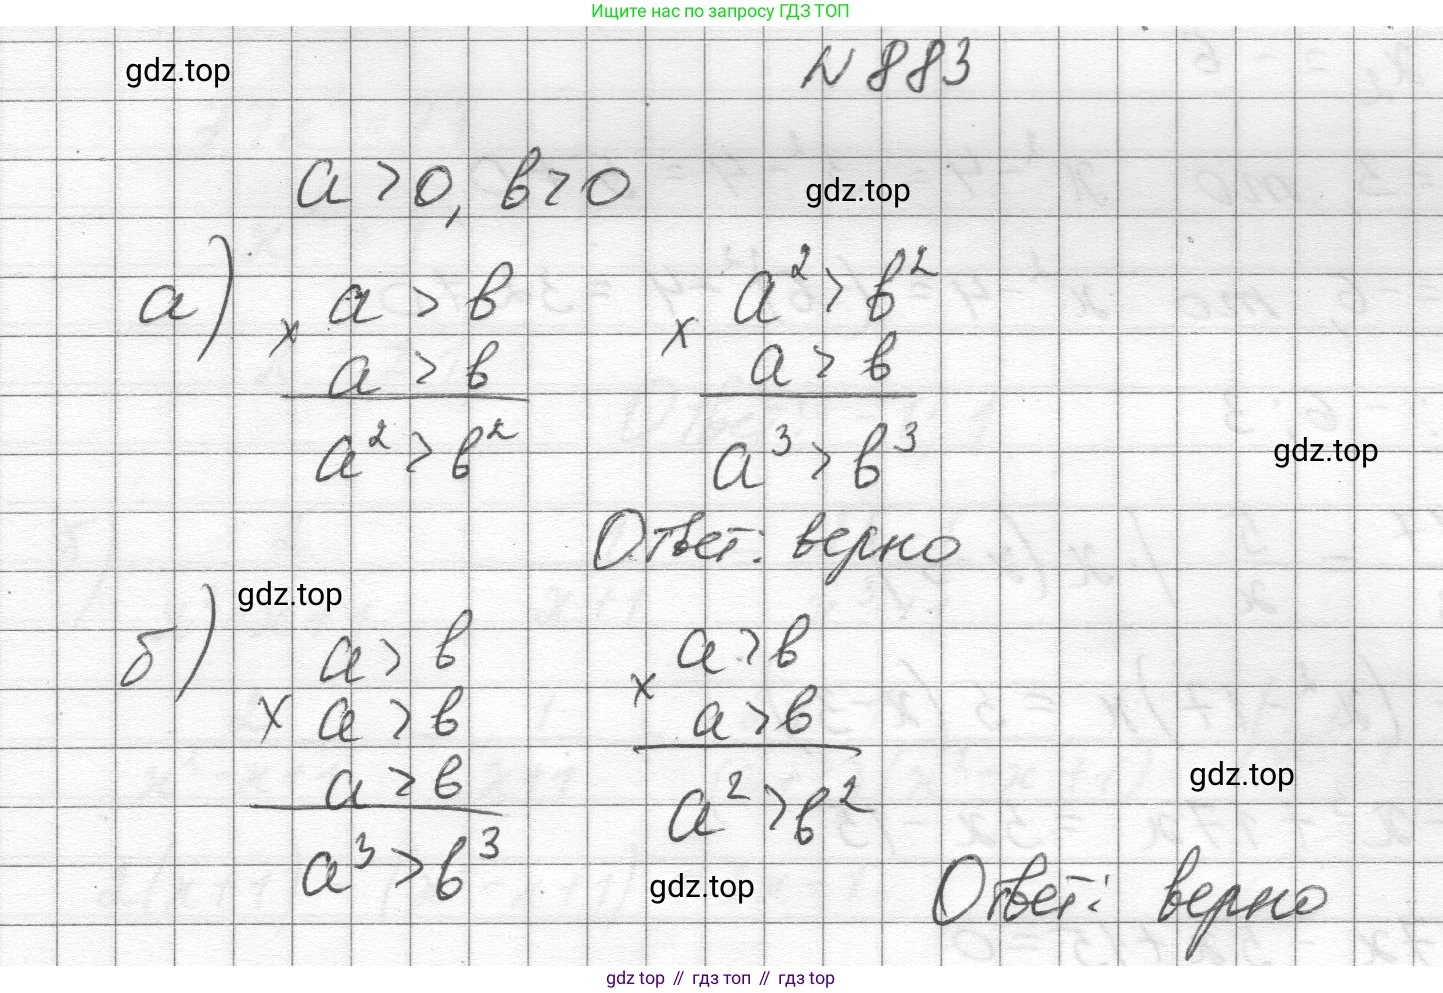 Ищите нас по запросу ГДЗ ТОП
gdz.top
N 883
a > 0, b > 0
gdz.top
а)
a > b
x
a > b
a² > b²
a² > b²
x
a > b
a³ > b³
gdz.top
Ответ: верно
gdz.top
б)
a > b
x a > b
a > b
a³ > b³
a > b
x
a > b
a² > b²
gdz.top
gdz.top
Ответ: верно
gdz top // гдз топ // гдз top